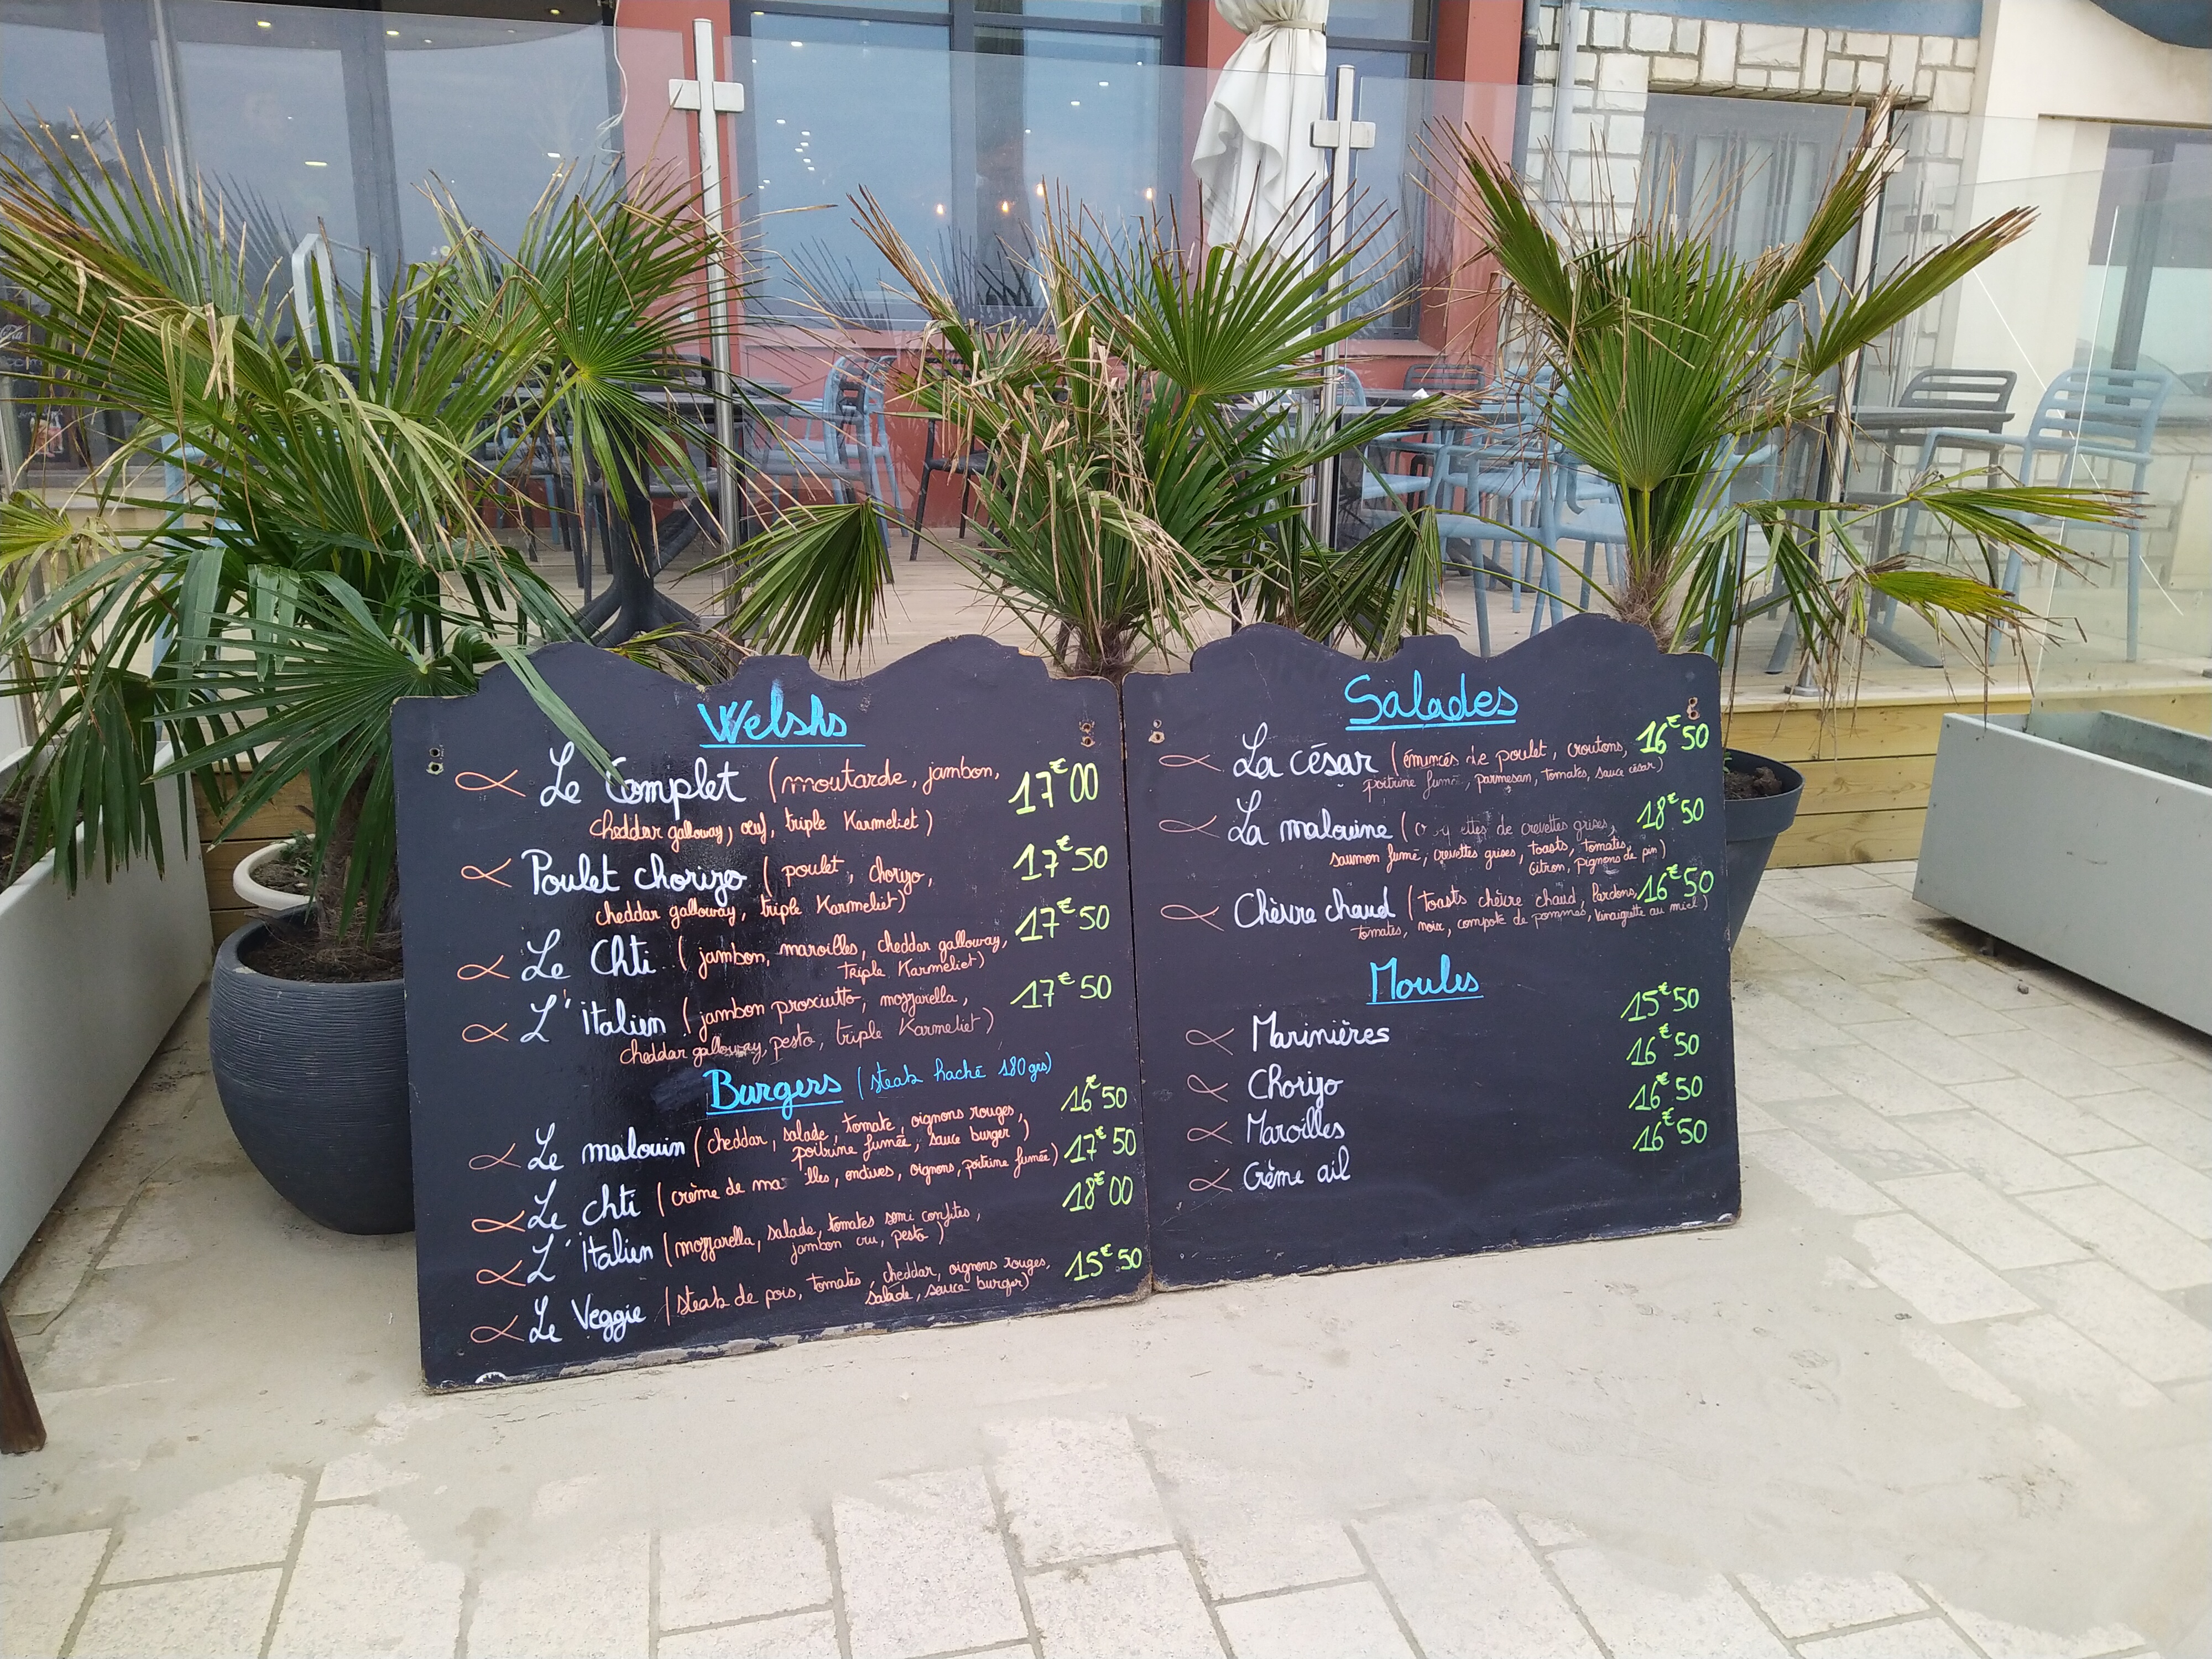 Welshs
Le Complet (moutarde, jambon, 17€00
cheddar galloway, œuf, triple Karmeliet)
Poulet chorizo (poulet, chorizo, 17€50
cheddar galloway, triple Karmeliet)
Le Chti (jambon, maroilles, cheddar galloway, 17€50
triple Karmeliet)
L'italien (jambon prosciutto, mozzarella, 17€50
cheddar galloway, pesto, triple Karmeliet)
Burgers (steak haché 180 grs)
Le malouin (cheddar, salade, tomate, oignons rouges, 16€50
poitrine fumée, sauce burger)
Le chti (crème de ma lles, endives, oignons, poitrine fumée) 17€50
L'italien (mozzarella, salade, tomates semi confites, 18€00
jambon cru, pesto)
Le Veggie (steak de pois, tomates, cheddar, oignons rouges, 15€50
salade, sauce burger)
Salades
La césar (émincés de poulet, croutons, 16€50
poitrine fumée, parmesan, tomates, sauce césar)
La malouine ( de crevettes grises, 18€50
saumon fumé, crevettes grises, toasts, tomates,
citron, pignons de pin)
Chèvre chaud (toasts chèvre chaud, lardons, 16€50
tomates, noix, compote de pommes, vinaigrette au miel)
Moules
Marinières 15€50
Chorizo 16€50
Maroilles 16€50
Crème ail 16€50